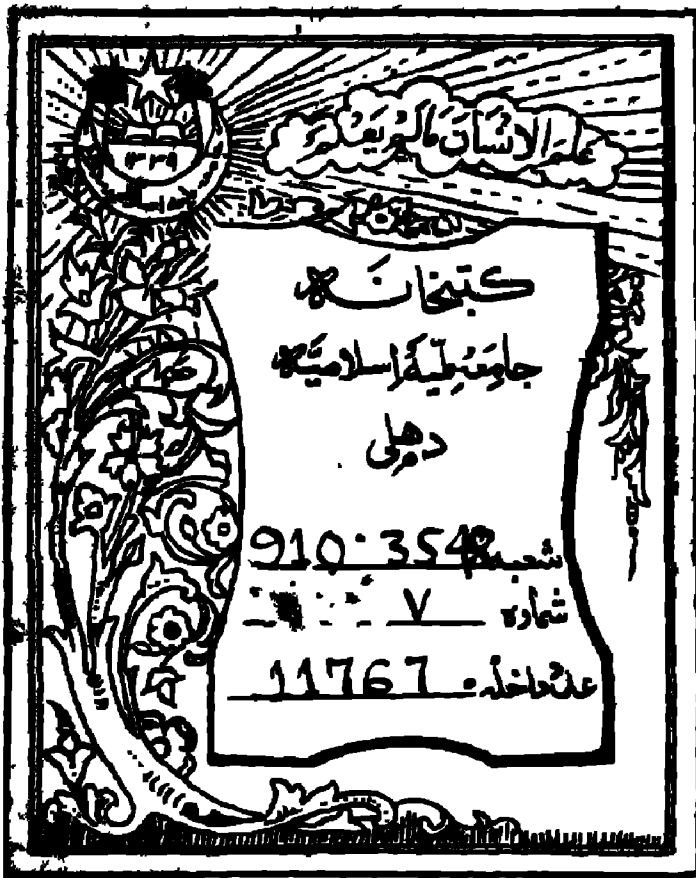 علم الانسان مالم يعلم
١٣٣٩
كتبخانہ
جامعہ ملیہ اسلامیہ
دهلی
شعبہ 910.3542
شماره ٧
عدد داخلہ 11767